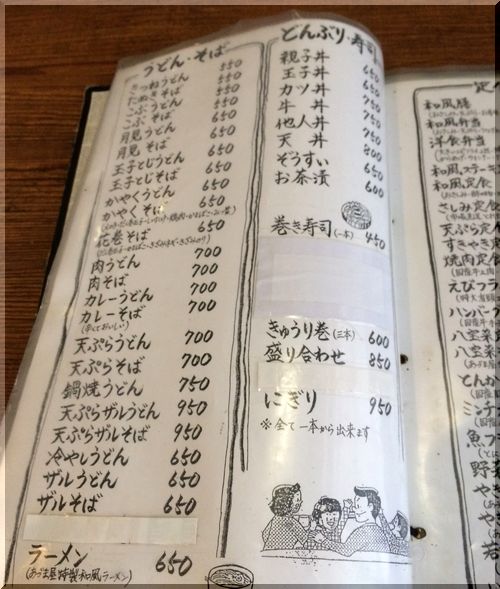 うどん・そば
きつねうどん 550
たぬきそば 550
こぶうどん 550
こぶそば 550
月見うどん 650
月見そば 650
玉子とじうどん 650
玉子とじそば 650
かやくうどん 650
かやくそば 650
花巻そば 650
肉うどん 700
肉そば 700
カレーうどん 700
カレーそば 700
(辛くておいしい)
天ぷらうどん 700
天ぷらそば 700
鍋焼うどん 750
天ぷらザルうどん 950
天ぷらザルそば 950
冷やしうどん 650
ザルうどん 650
ザルそば 650
ラーメン 650
(あづま屋特製和風ラーメン)
どんぶり・寿司
親子丼 650
玉子丼 650
カツ丼 750
牛丼 750
他人丼 750
天丼 800
ぞうすい 650
お茶漬 600
巻き寿司(一本) 450
きゅうり巻(三本) 600
盛り合わせ 850
にぎり 950
※全て一本から出来ます
和風膳
和風弁当
洋食弁当
和風ステーキ
和風定食
さしみ定
天ぷら定
すきやき
焼肉定食
えびフラ
ハンバー
八宝菜
八宝
とんか
ミンチ
魚フ
野
や